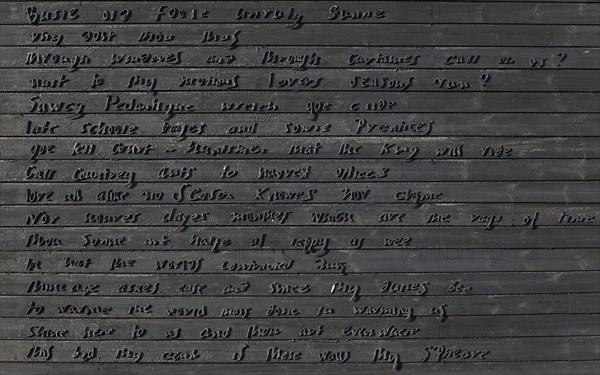 Busie old Foole unruly Sunne
why dost thou thus
Through windowes and through curtaines call on us?
must to thy motions lovers seasons run?
Sawcy Pedantique wretch goe chide
late schoole boyes and sowre Prentices
goe tell Court-Huntsmen that the King will ride
Call Countrey ants to harvest offices
Love all alike no Season Knowes nor clyme
Nor houres dayes months which are the rags of time
Thou Sunne art halfe as happy as wee
In that the worlds contracted thus
Thine age askes ease and since thy duties bee
to warme the world thats done in warming us
Shine here to us and thou art everywhere
This bed thy is these walls thy spheare